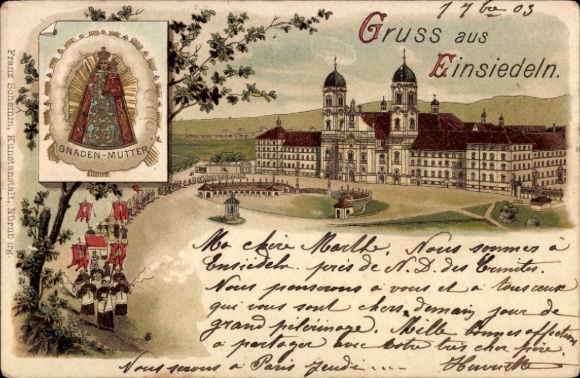 7 7bre 03
Gruss aus
Einsiedeln.
GNADEN-MUTTER
Franz Schemm, Kunstanstalt, Nürnberg.
Ma chère Marthe. Nous sommes à
Ensiedeln près de N. D. des Ermites.
Nous penserons à vous et à tous ceux
qui vous sont chers, demain, jour de
grand pélerinage. Mille bonnes affections
à partager avec votre très cher père.
Nous serons à Paris jeudi.... Henriette